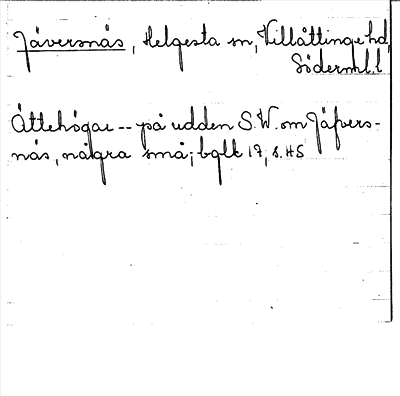 Jäversnäs, Helgesta sn, Villåttinge hd,
Söderml. l.
Ättehögar -- på udden S.W. om Jäfvers-
näs, några små; bglt 17, s. 45